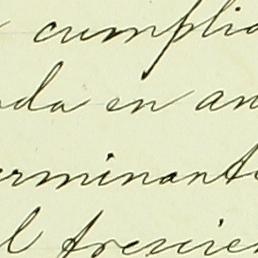 cumplid
da en an
erminant
l trescien